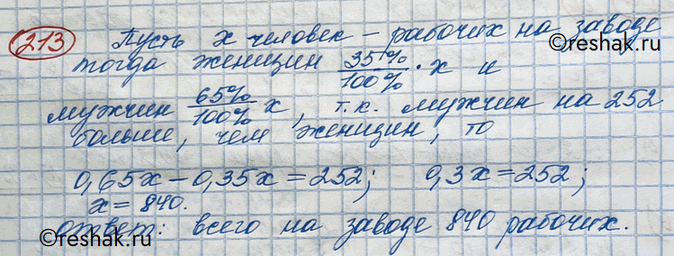 213 Пусть x человек – рабочих на заводе
©reshak.ru
тогда женщин 35%/100% · x и
мужчин 65%/100% x, т.к. мужчин на 252
больше, чем женщин, то
0,65x – 0,35x = 252; 0,3x = 252;
x = 840.
ответ: всего на заводе 840 рабочих.
©reshak.ru